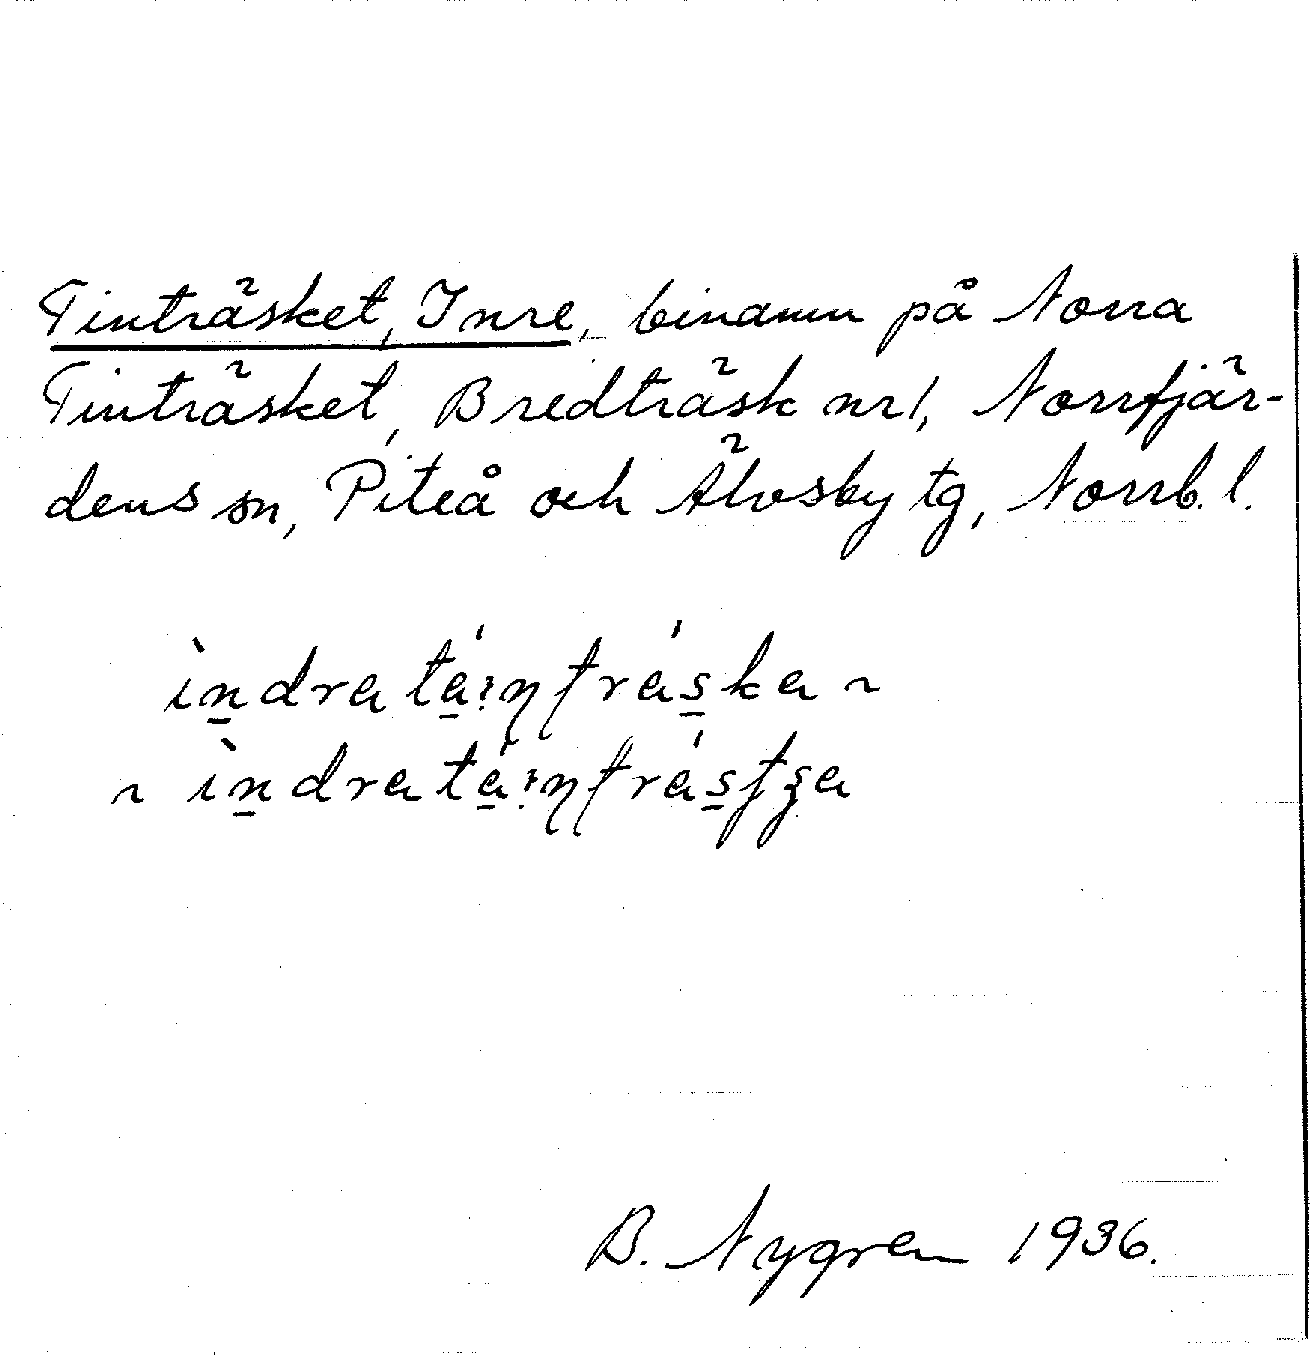 Tinträsket, Inre, binamn på Norra
Tinträsket, Bredträsk nr 1, Norrfjär-
dens sn, Piteå och Älvsby tg, Norrb. l.
ìn̲dra tá̲i̯ŋtrás̲ka ~
~ ìn̲dra tá̲i̯ŋtrás̲tʂa
B. Nygren 1936.